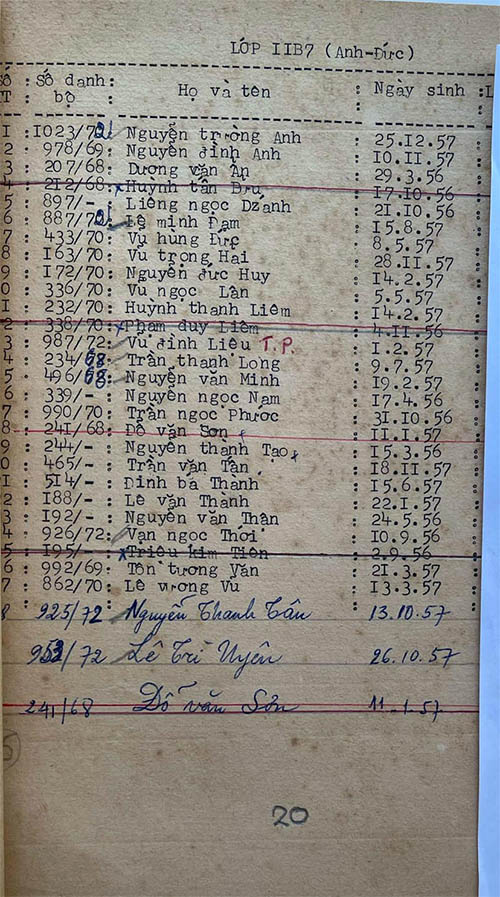 LỚP IIB7 (Anh-Đức)
Số : Số danh bộ : Họ và tên : Ngày sinh : L
I :1023/72: Nguyễn trường Anh : 25.12.57 :
2 : 978/69: Nguyễn đình Anh : 10.11.57 :
3 : 207/68: Dương văn Ân : 29.3.56 :
4 : 212/68: x Huỳnh tấn Bru : 17.10.56 :
5 : 897/- : Liêng ngọc Dzanh : 21.10.56 :
6 : 887/72: Lê minh Đạm : 15.8.57 :
7 : 433/70: Vũ hùng Đức : 8.5.57 :
8 : 163/70: Vũ trọng Hải : 28.11.57 :
9 : 172/70: Nguyễn đức Huy : 14.2.57 :
0 : 336/70: Vũ ngọc Lân : 5.5.57 :
I : 232/70: Huỳnh thanh Liêm : 14.2.57 :
2 : 338/70: x Phạm duy Liêm : 4.11.56 :
3 : 987/72: Vũ đình Liệu T.P. : 1.2.57 :
4 : 234/68: Trần thanh Long : 9.7.57 :
5 : 496/68: Nguyễn văn Minh : 19.2.57 :
6 : 339/- : Nguyễn ngọc Nam : 17.4.56 :
7 : 990/70: Trần ngọc Phước : 31.10.56 :
8 : 241/68: Đỗ văn Sơn x : 11.1.57 :
9 : 244/- : Nguyễn thanh Tạo x : 15.3.56 :
0 : 465/- : Trần văn Tấn : 18.11.57 :
I : 514/- : Đinh bá Thanh : 15.6.57 :
2 : 188/- : Lê văn Thành : 22.1.57 :
3 : 192/- : Nguyễn văn Thân : 24.5.56 :
4 : 926/72: Vạn ngọc Thới : 10.9.56 :
5 : 195/- : x Triệu kim Tiên : 2.9.56 :
6 : 992/69: Tôn tương Văn : 21.3.57 :
7 : 862/70: Lê vương Vũ : 13.3.57 :
8 925/72 Nguyễn Thanh Tân 13.10.57
953/72 Lê Tri Uyên 26.10.57
241/68 Đỗ văn Sơn 11.1.57
20